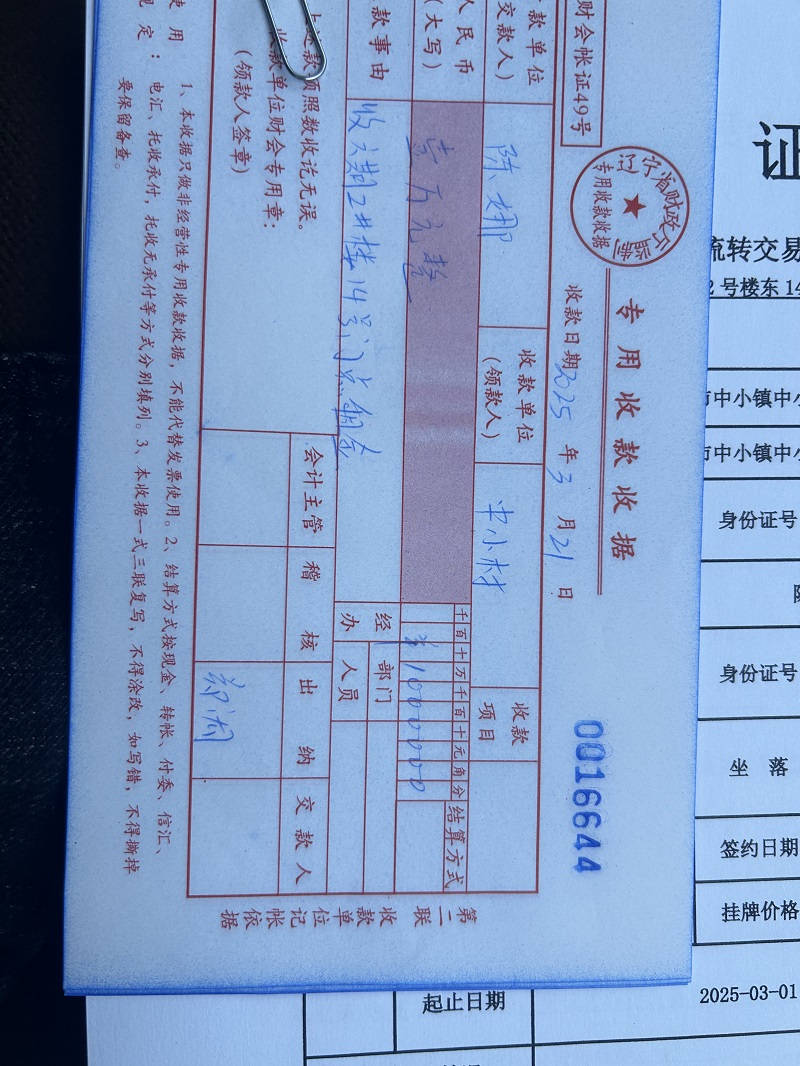 财会帐证49号
辽宁省财政厅监制
专用收款收据
专用收款收据
收款日期2025年3月21日
0016644
款单位
交款人）
陈娜
收款单位
（领款人）
中小村
收款
项目
人民币
（大写）
壹万元整
千百十万千百十元角分
¥1000000
结算方式
款事由
收二期2#楼14号门点佣金
经办
部门
人员
上述款项照数收讫无误。
收款单位财会专用章：
（领款人签章）
会计主管
稽核
出纳
交款人
使用规定：
1、本收据只做非经营性专用收款收据，不能代替发票使用。2、结算方式按现金、转帐、付委、信汇、
电汇、托收承付，托收无承付等方式分别填列。3、本收据一式三联复写，不得涂改，如写错，不得撕掉
要保留备查。
第二联收款单位记帐依据
证
流转交易
2号楼东14
市中小镇中小
市中小镇中小
身份证号
身份证号
坐落
签约日期
挂牌价格
起止日期
2025-03-01